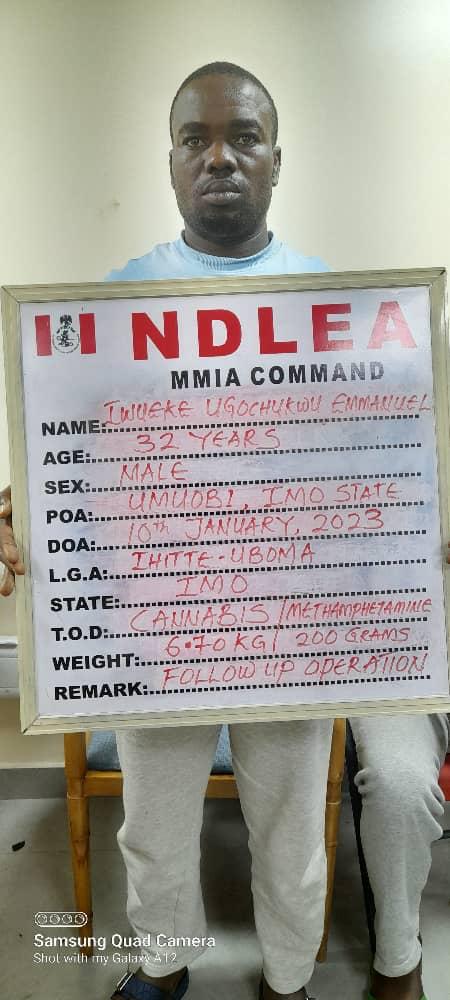 NDLEA
MMIA COMMAND
NAME: IWUEKE UGOCHUKWU EMMANUEL
AGE: 32 YEARS
SEX: MALE
POA: UMUOBI, IMO STATE
DOA: 10th JANUARY, 2023
L.G.A: IHITTE-UBOMA
STATE: IMO
T.O.D: CANNABIS/METHAMPHETAMINE
WEIGHT: 6.70KG/ 200 GRAMS
REMARK: FOLLOW UP OPERATION
Samsung Quad Camera
Shot with my Galaxy A12